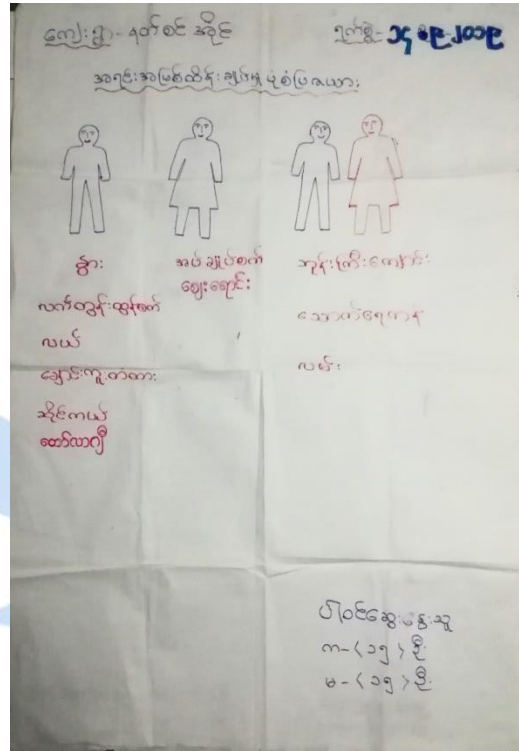 ကျေးရွာ - နတ်စင်အိုင်
ရက်စွဲ - ၁၄-၉-၂၀၁၉
အရင်းအမြစ်ထိန်းချုပ်မှုပုံစံပြဇယား
နွား
လက်တွန်းထွန်စက်
လယ်
ချောင်းကူးတံတား
ဆိုင်ကယ်
ထော်လာဂျီ
အပ်ချုပ်စက်
ဈေးရောင်း
ဘုန်းကြီးကျောင်း
သောက်ရေကန်
လမ်း
ပါဝင်ဆွေးနွေးသူ
က - < ၁၅ > ဦး
မ - < ၁၅ > ဦး